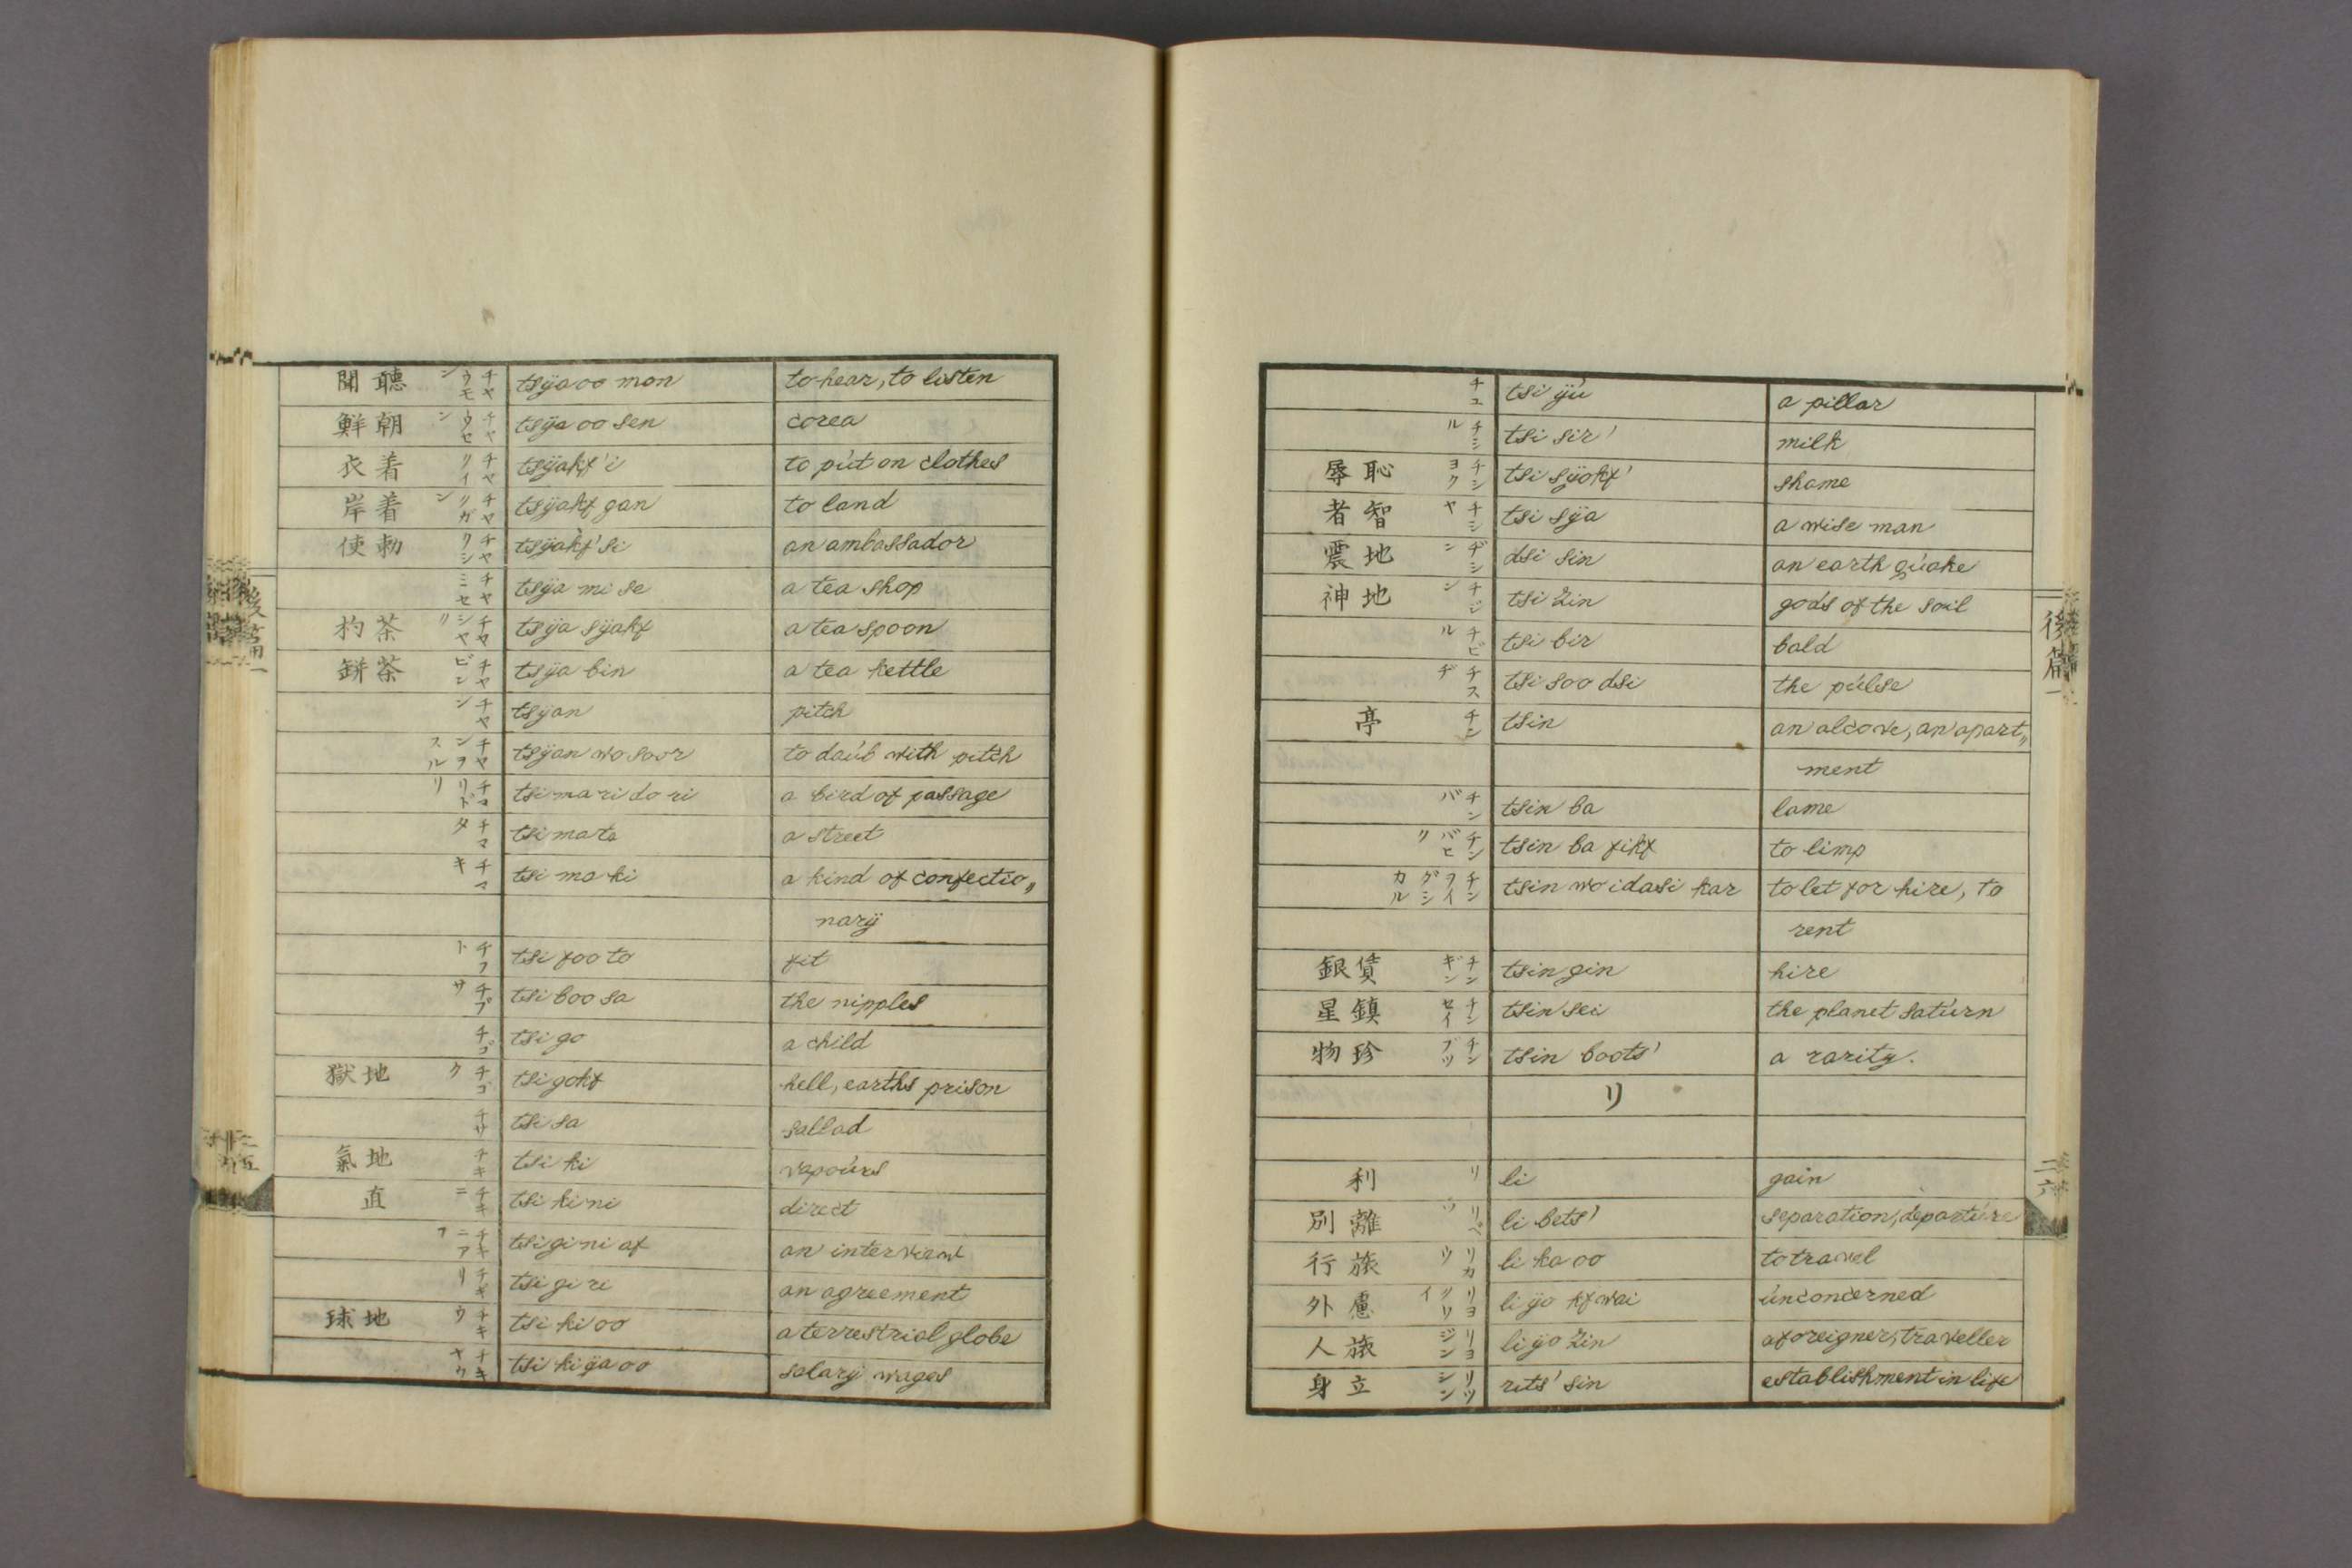 聞聽 チヤウモン tsÿa oo mon to hear, to listen
鮮朝 チヤウセン tsÿa oo sen corea
衣着 チヤクイ tsÿakf' i to put on clothes
岸着 チヤクガン tsÿakf gan to land
使勅 チヤクシ tsÿakf' si an ambassador
チヤミセ tsÿa mi se a tea shop
杓茶 チヤシヤク tsÿa sÿakf a tea spoon
缾茶 チヤビン tsÿa bin a tea kettle
チヤン tsÿan pitch
チヤンヲスル tsÿan wo soor to daub with pitch
チマリドリ tsi ma ri do ri a bird of passage
チマタ tsi ma ta a street
チマキ tsi ma ki a kind of confectio„
narÿ
チフト tsi foo to fit
チブサ tsi boo sa the nipples
チゴ tsi go a child
獄地 チゴク tsi gokf hell, earths prison
チサ tsi sa sallad
氣地 チキ tsi ki vapours
直 チキニ tsi ki ni direct
チキニアフ tsi gi ni af an interview
チギリ tsi gi ri an agreement
球地 チキウ tsi ki oo a terrestrial globe
チキヤウ tsi ki ÿa oo salarÿ wages
後篇一
廿五
チユ tsi ÿu a pillar
チシル tsi sir' milk
辱恥 チシヨク tsi sÿokf' shame
者智 チシヤ tsi sÿa a wise man
震地 ヂシン dsi sin an earth quake
神地 チジン tsi zin gods of the soil
チビル tsi bir bald
チスヂ tsi soo dsi the pulse
亭 チン tsin an alcove, an apart„
ment
チンバ tsin ba lame
チンバヒク tsin ba fikf to limp
チンヲイダシカル tsin wo idasi kar to let for hire, to
rent
銀賃 チンギン tsin gin hire
星鎮 チンセイ tsin sei the planet saturn
物珍 チンブツ tsin boots' a rarity.
リ
利 リ li gain
別離 リベツ li bets' separation, departure
行旅 リカウ li ka oo to travel
外慮 リヨクワイ li ÿo kfwai unconcerned
人旅 リヨジン li ÿo zin a foreigner, traveller
身立 リツシン rits' sin establishment in life
後篇一
二六